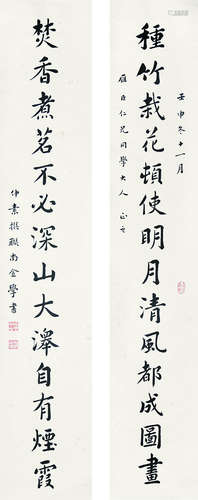 壬申冬十一月
種竹栽花頓使明月清風都成圖畫
雁臣仁兄同學大人 正之
焚香煮茗不必深山大澤自有煙霞
仲素撰聯尚金學書